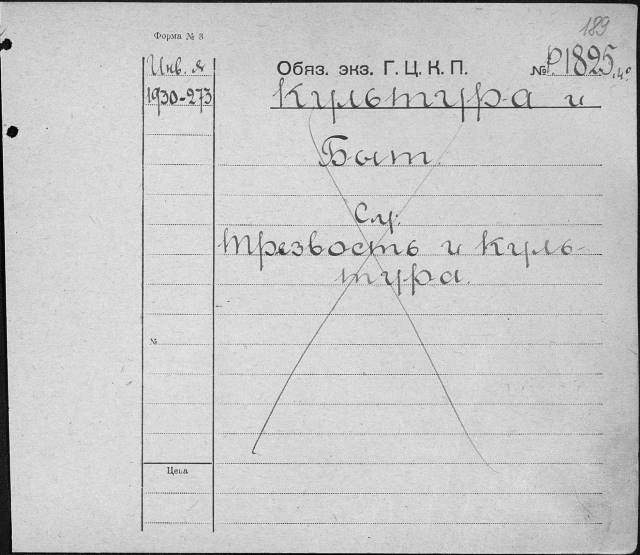 189
Форма № 3
Инв. №
Обяз. экз. Г. Ц. К. П.
№ Р1825.4°
1930-273
Культура и
Быт.
См.
Трезвость и Куль-
тура.
№
Цена